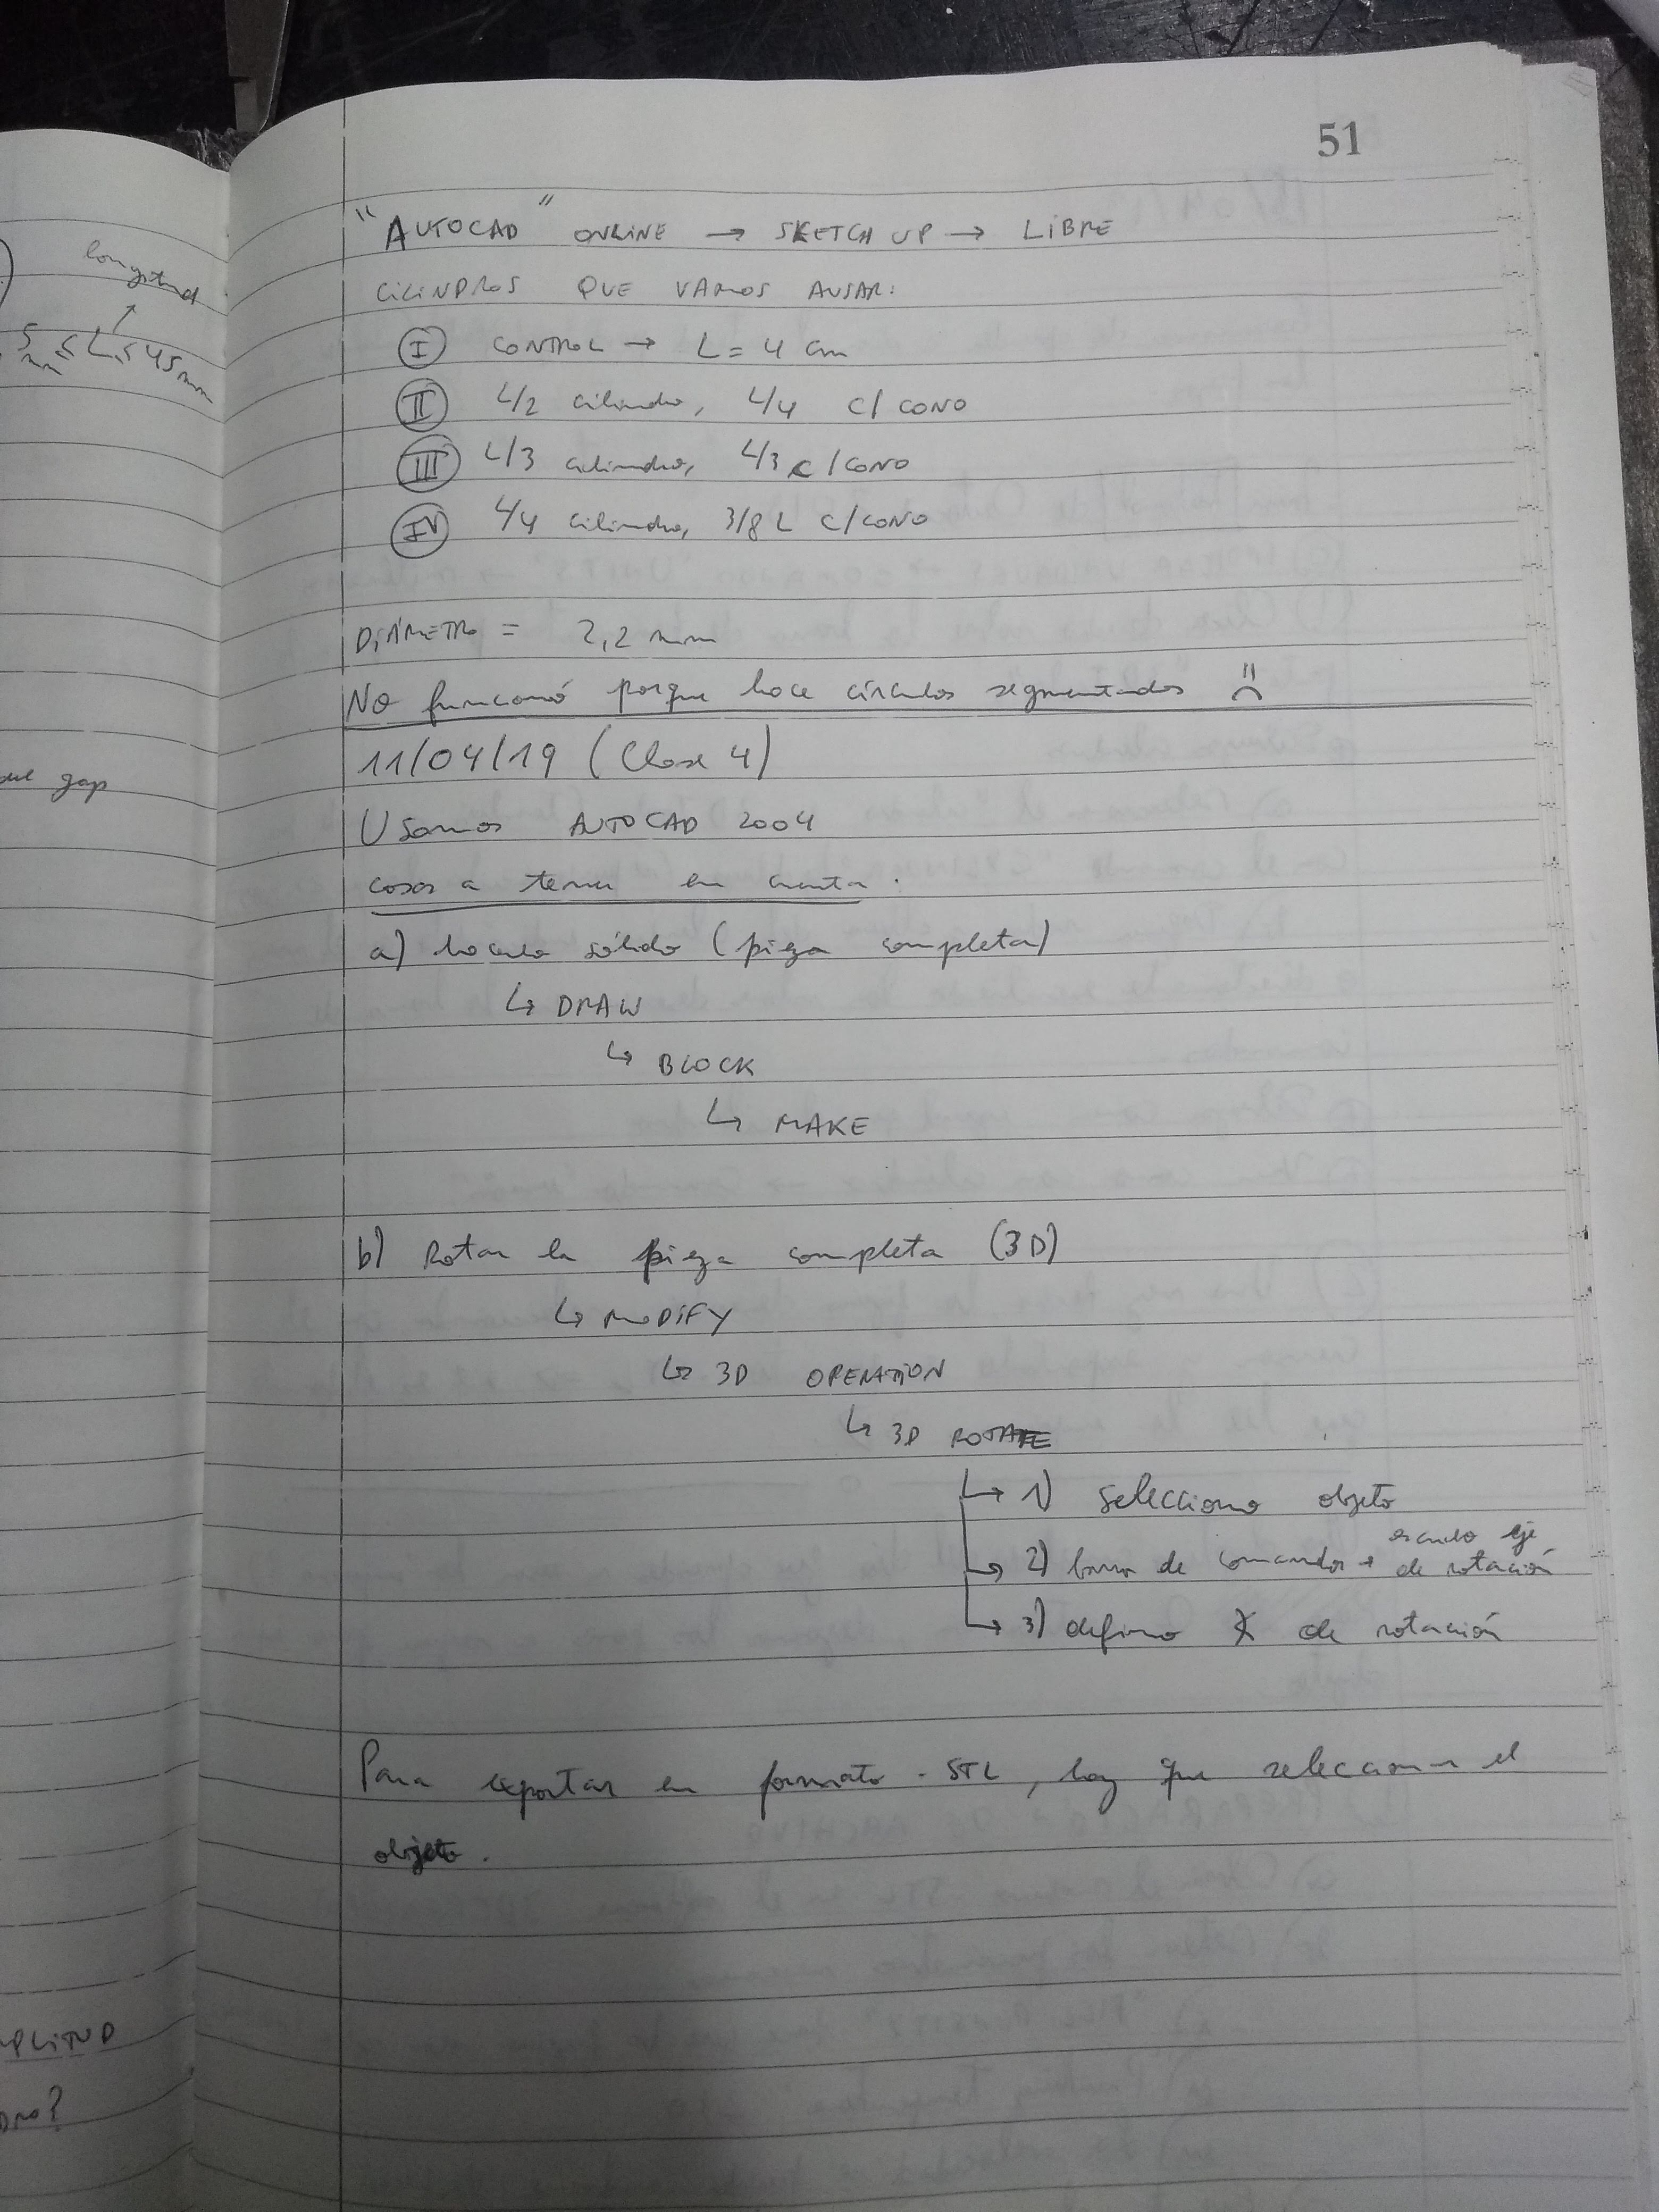 51
"AUTOCAD" ONLINE → SKETCH UP → LIBRE
CILINDROS QUE VAMOS A USAR:
I CONTROL → L = 4 cm
II L/2 cilindro, L/4 c/ CONO
III L/3 cilindro, L/3 c/CONO
IV L/4 cilindro, 3/8 L c/CONO
DIÁMETRO = 2,2 mm
NO funcionó porque hace círculos segmentados
11/04/19 (Clase 4)
Usamos AUTOCAD 2004
cosas a tener en cuenta.
a) hacerlo sólido (pieza completa)
↳ DRAW
↳ BLOCK
↳ MAKE
b) Rotar la pieza completa (3D)
↳ MODIFY
↳ 3D OPERATION
↳ 3D ROTATE
↳ 1) selecciono objeto
→ 2) barra de comandos → eje de rotación
→ 3) defino ∡ de rotación
Para exportar en formato .STL, hay que seleccionar el
objeto.
longitud
5 mm ≤ L ≤ 45 mm
gap